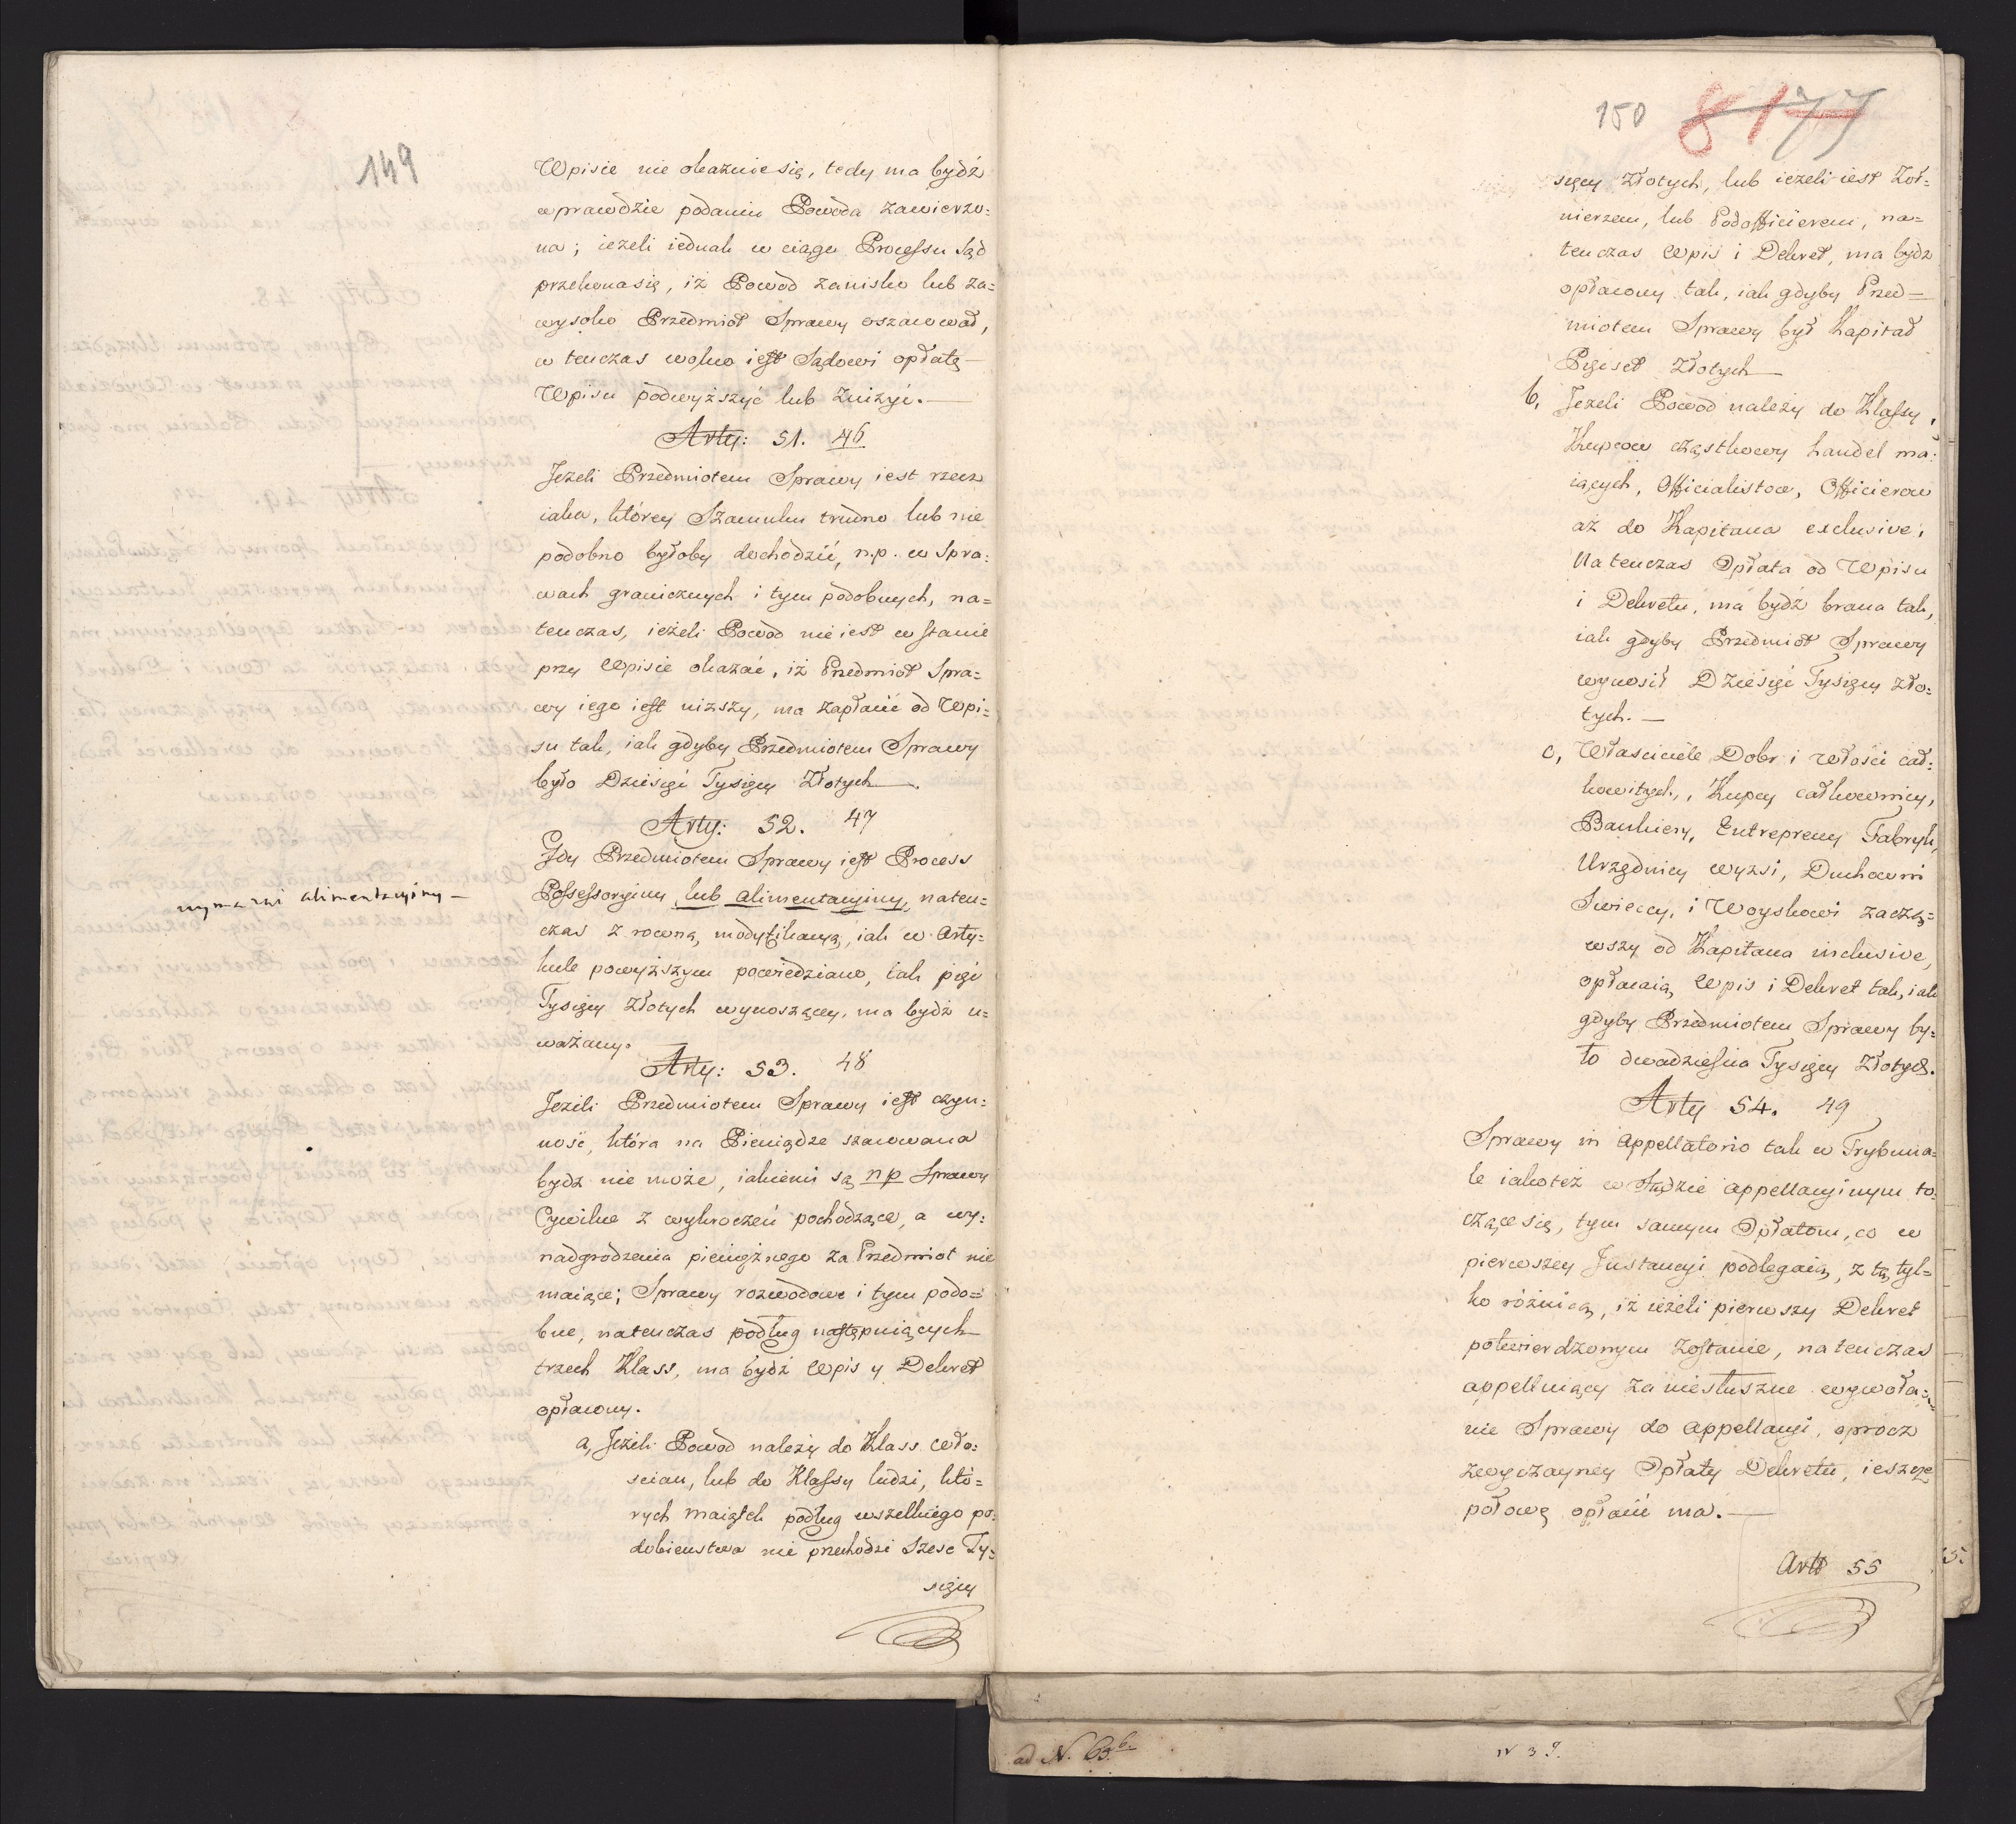 149
Wpisie nie okaznie się, tedy ma bydź
wprawdzie podaniu Powoda zawierzo=
na; ieżeli iednak w ciągu Processu Sąd
przekona się, iż Powod zanisko lub za=
wysoko Przedmiot Sprawy oszacował,
w tenczas wolno iest Sądowi opłatę
Wpisu podwyższyć lub Zniżyć.
Arty: 51. 46
Jeżeli Przedmiotem Sprawy iest rzecz
iaka, którey Szacunku trudno lub nie
podobno byłoby dochodzić, n.p. w Spra=
wach granicznych i tym podobnych, na=
tenczas, ieżeli Powod nie iest w stanie
przy Wpisie okazać, iż Przedmiot Spra=
wy iego iest niższy, ma zapłacić od Wpi=
su tak, iak gdyby Przedmiotem Sprawy
było Dziesięć Tysięcy Złotych.
Arty: 52. 47
Gdy Przedmiotem Sprawy iest Process
Possessoryiny, lub alimentacyiny, naten=
alimentacyiny
czas z rowną, modyfikacyą, iak w Arty=
kule powyższym powiedziano, iak pięć
Tysięcy Złotych wynoszący, ma bydź u=
ważany.
Arty: 53. 48
Jeżeli Przedmiotem Sprawy iest czyn=
ność, która na Pieniądze szacowana
bydz nie może, iakiemi są np Sprawy
Cywilne z wykroczeń pochodzące, a wy=
nadgrodzenia pieniężnego za Przedmiot nie
maiące; Sprawy rozwodowe i tym podo=
bne, natenczas podług następuiących
trzech Klass, ma bydź Wpis y Dekret
opłacony.
a, Jeżeli Powod należy do Klass. Wło=
scian, lub do Klassy ludzi, któ=
rych maiątek podług wszelkiego po=
dobienstwa nie przechodzi Szesc Ty=
sięcy
150 8177
sięcy Złotych, lub ieżeli iest Zoł=
nierzem, lub Podofficierem, na=
tenczas Wpis i Dekret, ma bydz
opłacony tak, iak gdyby Przed=
miotem Sprawy był Kapitał
Pięcset Złotych
b, Jeżeli Powod należy do Klassy,
Kupcow cząstkowy handel ma=
iących, Officialistow, Officierow
aż do Kapitana exclusive,
Natenczas Opłata od Wpisu
i Dekretu, ma bydź brana tak,
iak gdyby Przedmiot Sprawy
wynosił Dziesięć Tysięcy Zło=
tych.
c, Właściciele Dobr i włości cał=
kowitych, Kupcy całkownicy,
Bankiery, Entrepreny Fabryk,
Urzędnicy wyżsi, Duchowni
Swieccy, i Woyskowi zaczą=
wszy od Kapitana inclusive,
opłacaią Wpis i Dekret tak, iak
gdyby Przedmiotem Sprawy by=
ło dwadzieścia Tysięcy Złotych.
Arty 54. 49
Sprawy in Appellatorio tak w Trybuna=
le iakoteż w Sądzie appellacyinym to=
czące się, tym samym Opłatom, co w
pierwszey Instancyi podlegaią, z tą tyl=
ko różnicą, iż ieżeli pierwszy Dekret
potwierdzonym zostanie, natenczas
appelluiący za niesłuszne wywoła=
nie Sprawy do appellacyi, oprocz
zwyczayney Opłaty Dekretu, ieszcze
połowę opłacić ma.
Art 55
ad N. 63 b.
N 39.